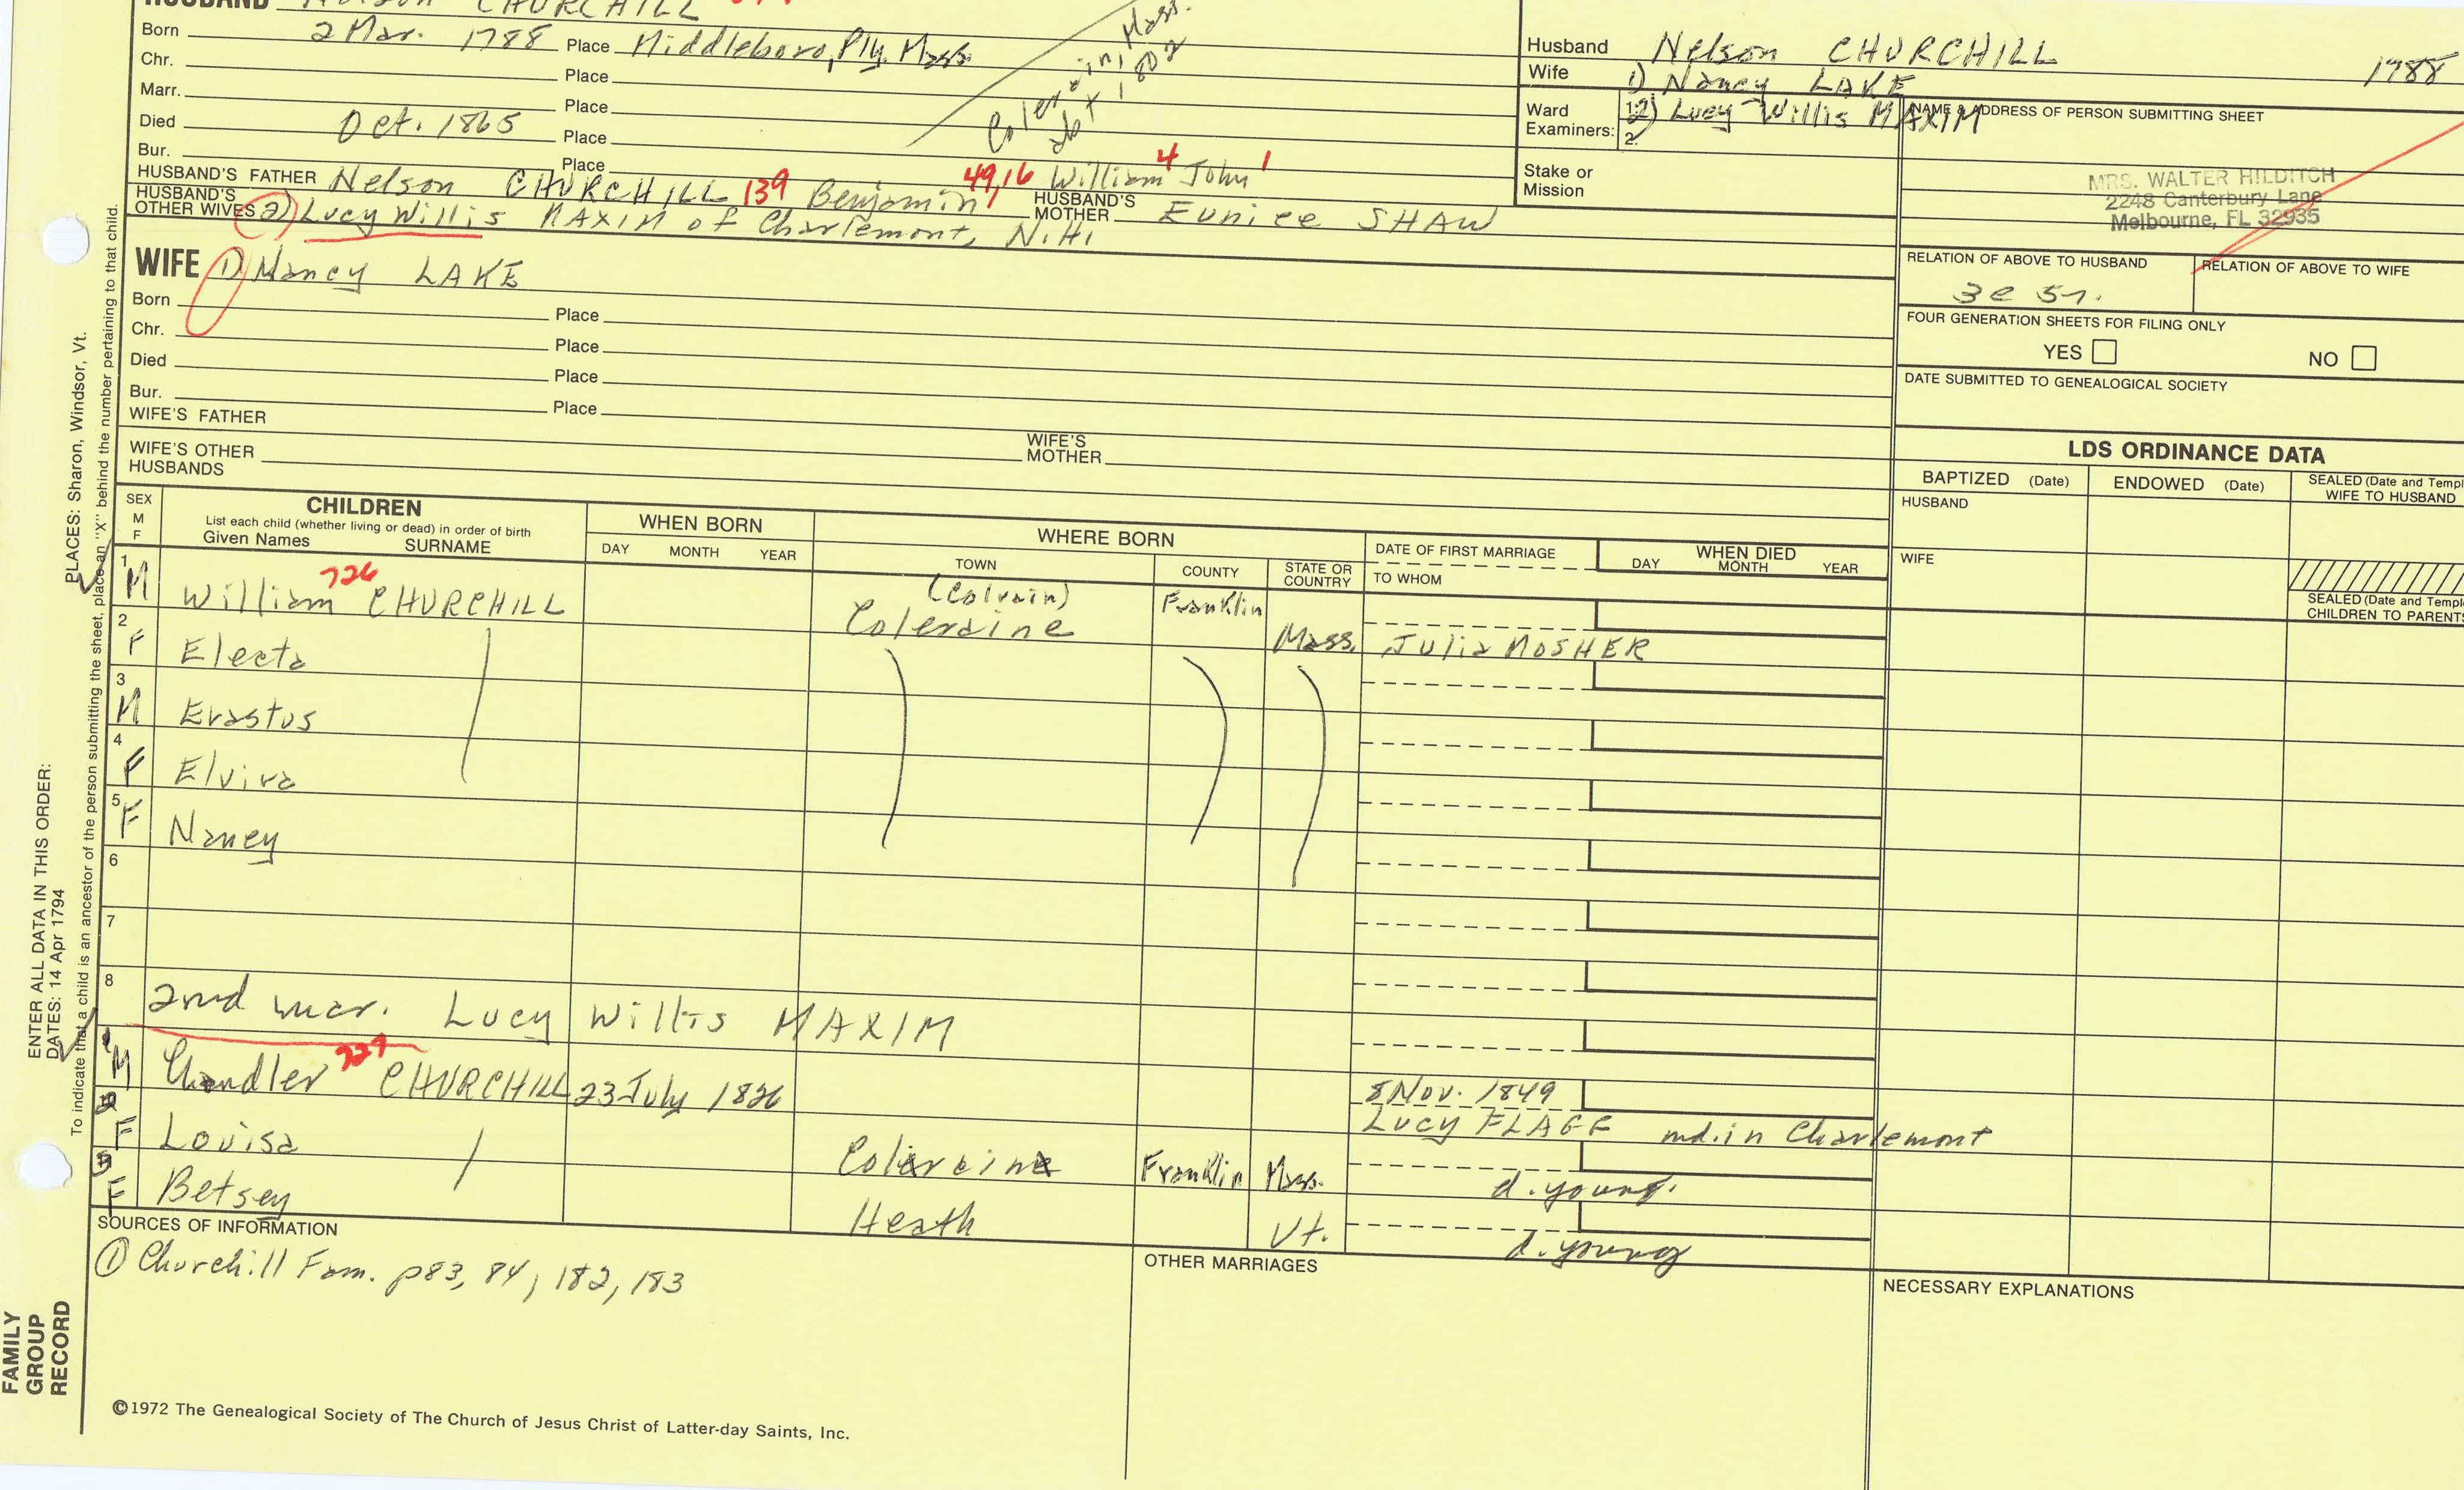 HUSBAND Nelson CHURCHILL
Born 2 Mar. 1788 Place Middleboro, Ply. Mass.
Chr. Place
Marr. Place
Died Oct. 1865 Place
Bur. Place
Mass.
1802
HUSBAND'S FATHER Nelson CHURCHILL 139 Benjamin 49,16 William 4 John 1
HUSBAND'S MOTHER Eunice SHAW
HUSBAND'S OTHER WIVES 2) Lucy Willis MAXIM of Charlemont, N.H.
WIFE 1) Nancy LAKE
Born Place
Chr. Place
Died Place
Bur. Place
WIFE'S FATHER
WIFE'S MOTHER
WIFE'S OTHER HUSBANDS
Husband Nelson CHURCHILL 1788
Wife 1) Nancy LAKE
2) Lucy Willis MAXIM
Ward Examiners: 1. 2.
Stake or Mission
NAME & ADDRESS OF PERSON SUBMITTING SHEET
MRS. WALTER HILDITCH
2248 Canterbury Lane
Melbourne, FL 32935
RELATION OF ABOVE TO HUSBAND
RELATION OF ABOVE TO WIFE
FOUR GENERATION SHEETS FOR FILING ONLY
YES NO
DATE SUBMITTED TO GENEALOGICAL SOCIETY
LDS ORDINANCE DATA
BAPTIZED (Date) ENDOWED (Date) SEALED (Date and Templ
WIFE TO HUSBAND
HUSBAND
WIFE
SEALED (Date and Templ
CHILDREN TO PARENTS
SEX M F
CHILDREN
List each child (whether living or dead) in order of birth
Given Names SURNAME
WHEN BORN
DAY MONTH YEAR
WHERE BORN
TOWN COUNTY STATE OR COUNTRY
DATE OF FIRST MARRIAGE
TO WHOM
WHEN DIED
DAY MONTH YEAR
1 M William 726 CHURCHILL (Colrain) Coleraine Franklin Mass. Julia MOSHER
2 F Electa
3 M Erastus
4 F Elvira
5 F Nancy
6
7
8
2nd mar. Lucy Willis MAXIM
1 M Chandler 727 CHURCHILL 23 July 1826 8 Nov. 1849
Lucy FLAGG md. in Charlemont
2 F Louisa Colerain Franklin Mass. d. young.
3 F Betsey Heath Vt. d. young
SOURCES OF INFORMATION
① Churchill Fam. p83, 84, 182, 183
OTHER MARRIAGES
NECESSARY EXPLANATIONS
©1972 The Genealogical Society of The Church of Jesus Christ of Latter-day Saints, Inc.
FAMILY
GROUP
RECORD
ENTER ALL DATA IN THIS ORDER:
DATES: 14 Apr 1794 PLACES: Sharon, Windsor, Vt.
To indicate that a child is an ancestor of the person submitting the sheet, place an "X" behind the number pertaining to that child.